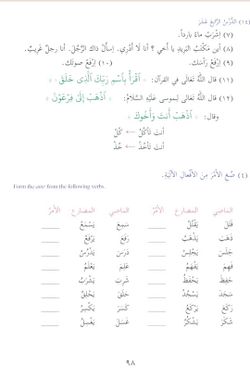 (١٤) الدَّرْسُ الرَّابِعَ عَشَرَ
(٧) اِشْرَبْ مَاءً بَارِداً.
(٨) أين مَكْتَبُ البَرِيدِ يا أخِي ؟ أنا لا أَدْرِي. اِسْأَلْ ذاكَ الرَّجُلَ. أنا رجلٌ غَرِيبٌ.
(٩) اِرْفَعْ رَأسَكَ. (١٠) اِرْفَعْ صوتَكَ.
(١١) قال اللَّهُ تَعَالَى في القرآن: ﴿ ٱقْرَأْ بِٱسْمِ رَبِّكَ ٱلَّذِى خَلَقَ ﴾
(١٢) قال اللَّهُ تَعَالَى لموسى عَلَيْهِ السَّلامُ: ﴿ ٱذْهَبْ إِلَىٰ فِرْعَوْنَ ﴾
وقال: ﴿ ٱذْهَبْ أَنتَ وَأَخُوكَ ﴾
أنت تَأكُلُ ← كُلْ
أنت تَأخُذُ ← خُذْ
(٤) صُغِ الأَمْرَ مِنَ الأفْعالِ الآتِيَةِ.
Form the amr from the following verbs.
الماضي المضارع الأمْرُ الماضي المضارع الأمْرُ
قَتَلَ يَقْتُلُ ______ سَمِعَ يَسْمَعُ ______
ذَهَبَ يَذْهَبُ ______ رَفَعَ يَرْفَعُ ______
جَلَسَ يَجْلِسُ ______ دَرَسَ يَدْرُسُ ______
فَهِمَ يَفْهَمُ ______ عَلِمَ يَعْلَمُ ______
حَفِظَ يَحْفَظُ ______ شَرِبَ يَشْرَبُ ______
سَجَدَ يَسْجُدُ ______ خَلَقَ يَخْلُقُ ______
رَكَعَ يَرْكَعُ ______ كَسَرَ يَكْسِرُ ______
شَكَرَ يَشْكُرُ ______ غَسَلَ يَغْسِلُ ______
٩٨